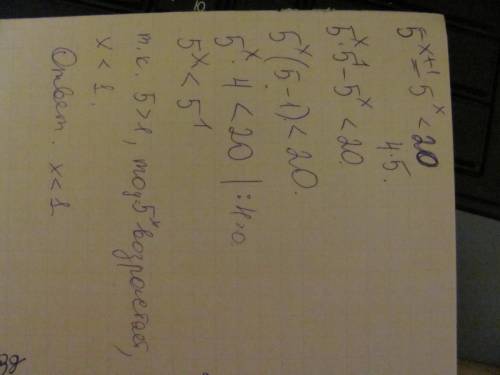 5^(x+1) - 5^x < 20
4·5.
5^x·5^1 - 5^x < 20.
5^x(5-1) < 20.
5^x·4 < 20 | :4>0
5^x < 5^1
т.к. 5>1, то 5^x возрастает,
x < 1.
Ответ. x < 1